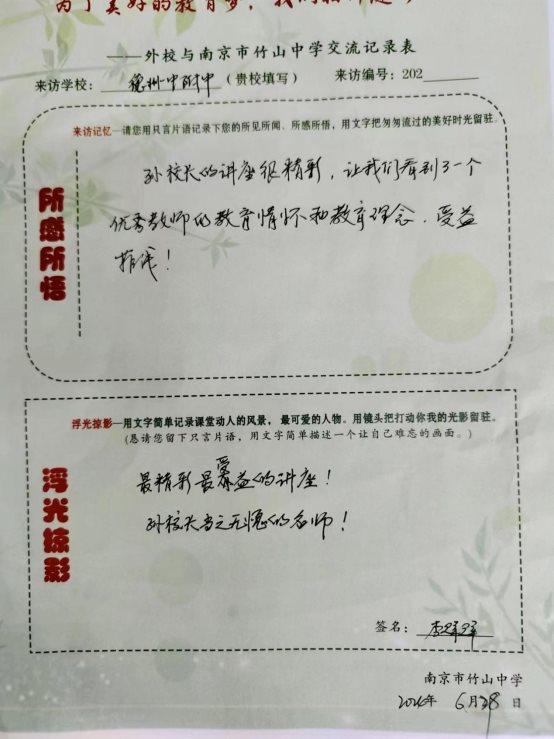 为了美好的教育梦，我们
——外校与南京市竹山中学交流记录表
来访学校：徐州中附中（贵校填写） 来访编号：202
来访记忆—请您用只言片语记录下您的所见所闻、所感所悟，用文字把匆匆流过的美好时光留驻。
所感所悟
孙校长的讲座很精彩，让我们看到了一个
优秀教师的教育情怀和教育理念．受益
匪浅！
浮光掠影—用文字简单记录课堂动人的风景，最可爱的人物。用镜头把打动你我的光影留驻。
（恳请您留下只言片语，用文字简单描述一个让自己难忘的画面。）
浮光掠影
最精彩最受益的讲座！
孙校长当之无愧的名师！
签名：李
南京市竹山中学
年 6月28日